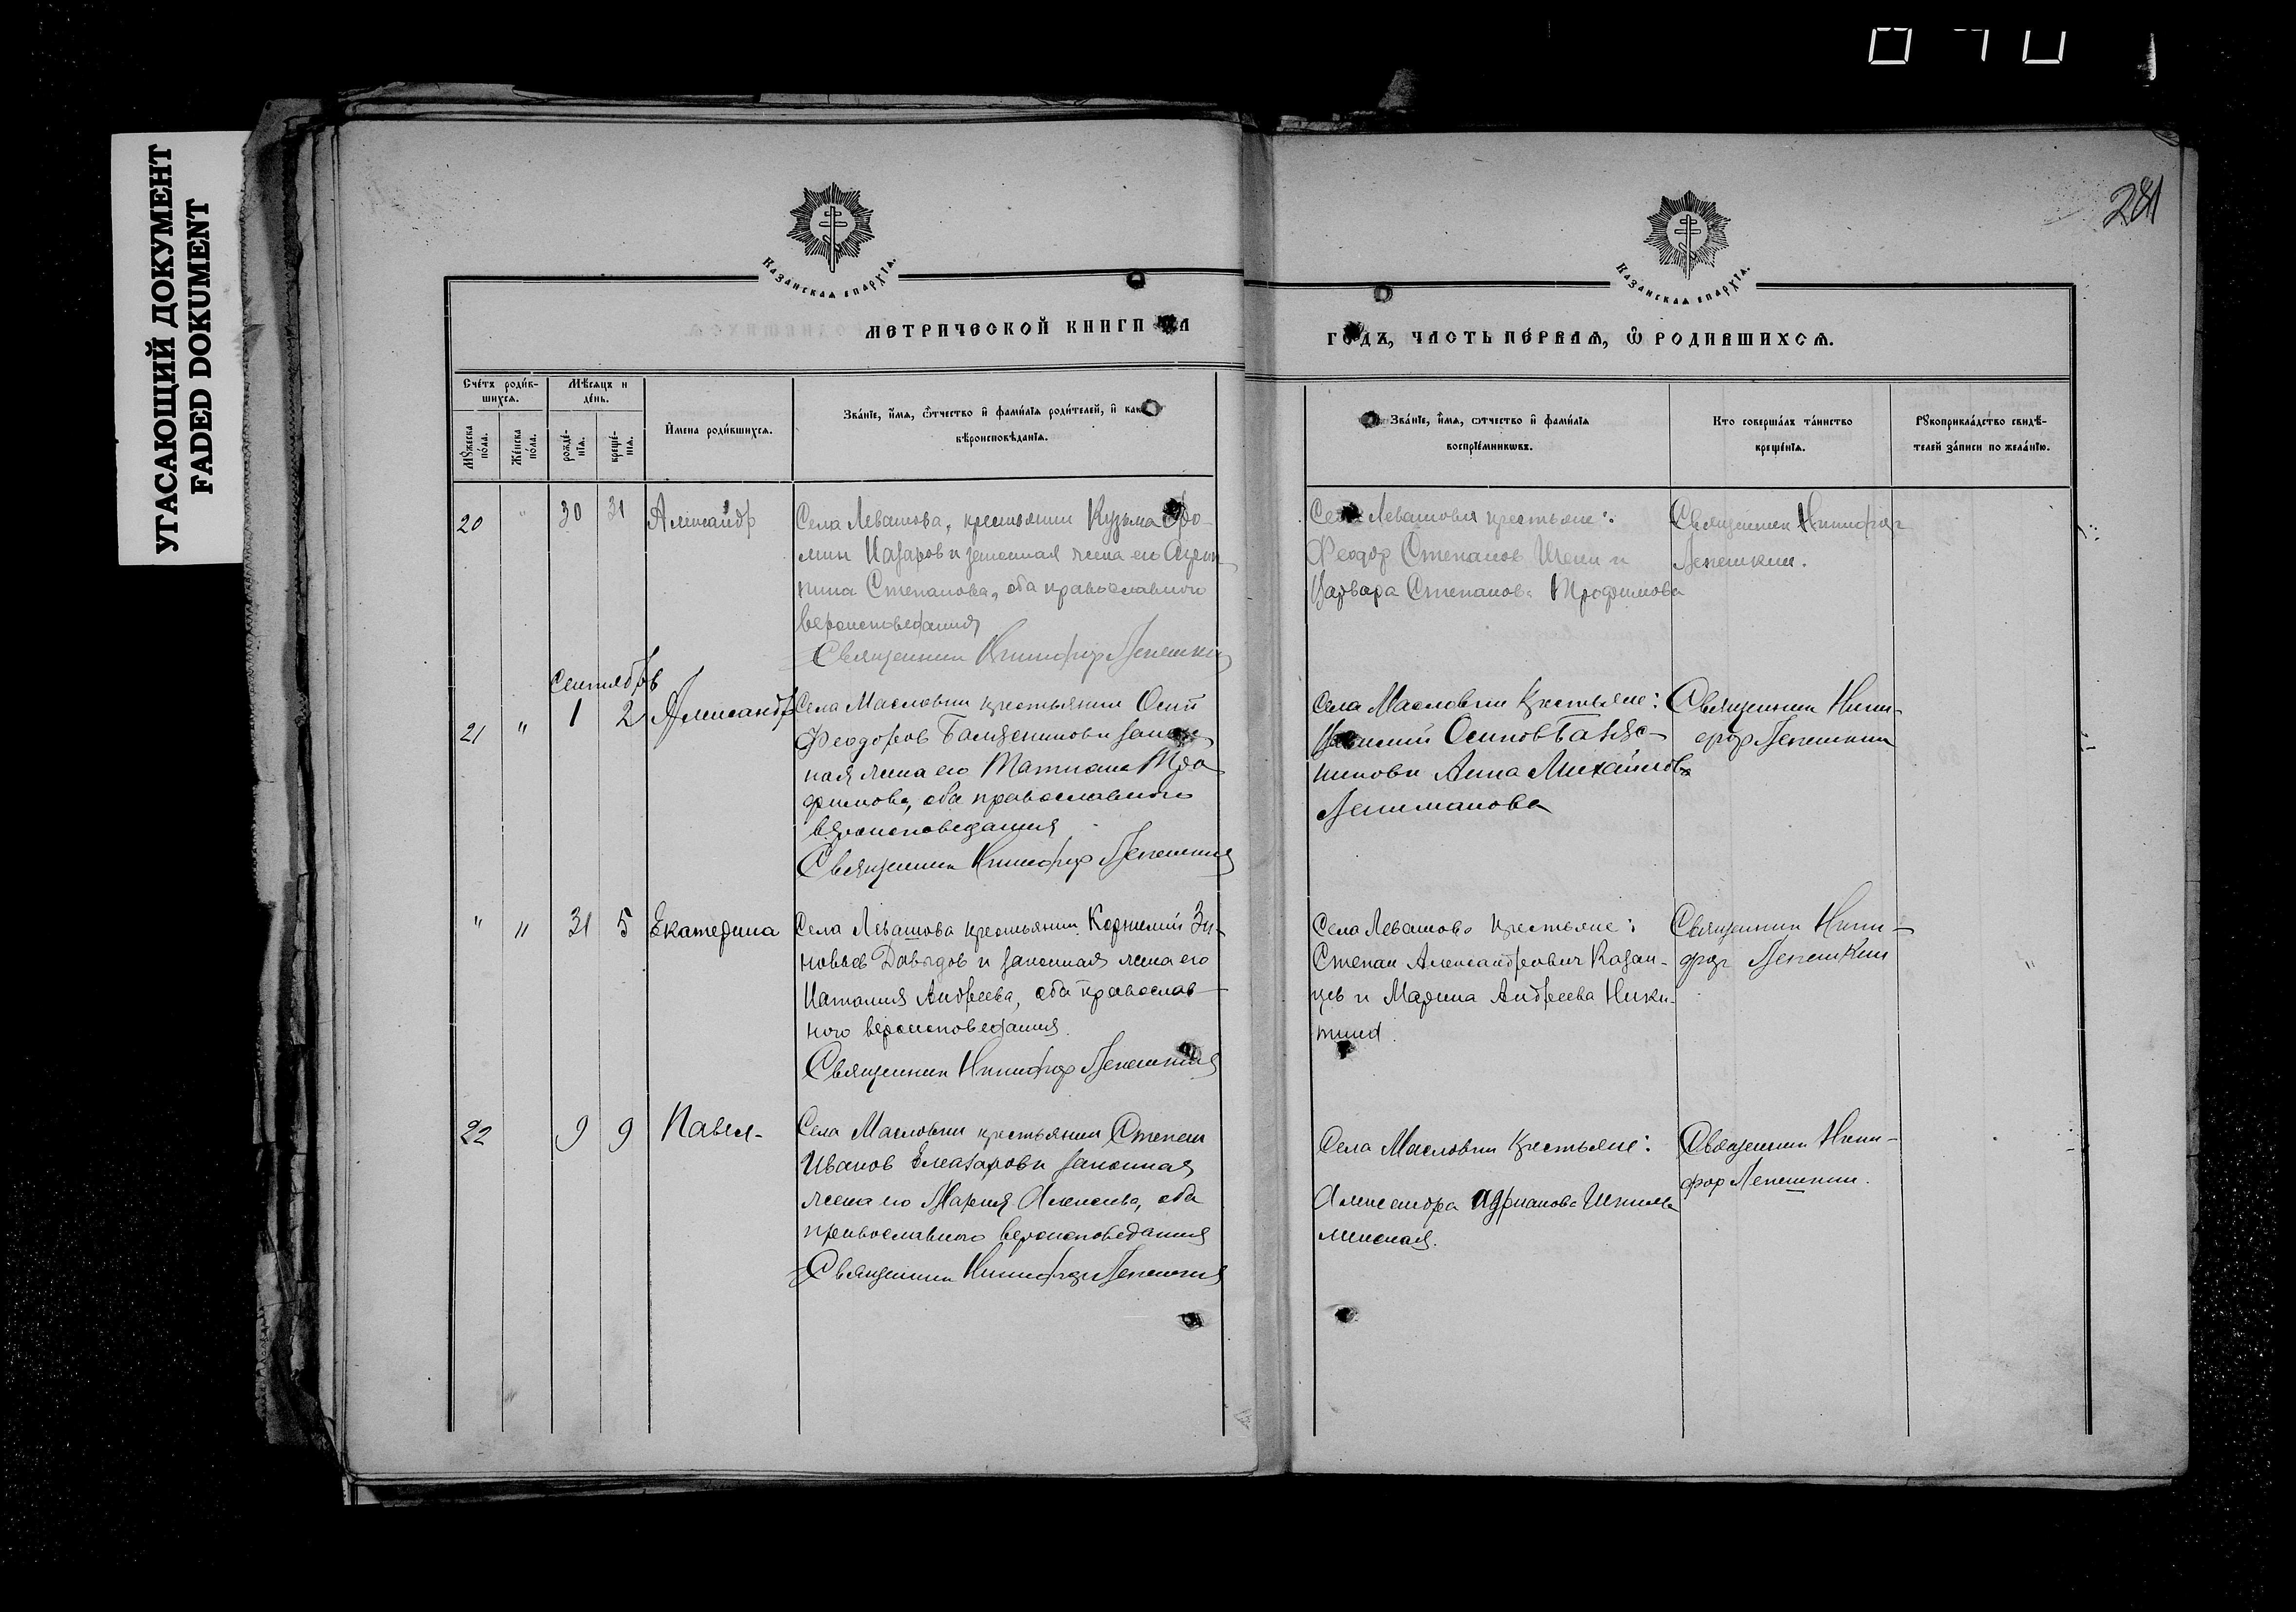 УГАСАЮЩИЙ ДОКУМЕНТ
FADED DOKUMENT
281
Казанская епархія.
Казанская епархія.
МЕТРИЧЕСКОЙ КНИГИ НА
ГОДЪ, ЧАСТЬ ПЕРВАЯ, Ѡ РОДИВШИХСЯ.
Счетъ родив-
шихся.
Мѣсяцъ и
день.
Имена родившихся.
Званіе, имя, ѿчество и фамилія родителей, и как
вѣроисповѣданія.
Мꙋжеска
пола.
Женска
пола.
рожде-
нія.
креще-
нія.
Званіе, имя, ѿтчество и фамилія
воспріемниковъ.
Кто совершалъ таинство
крещенія.
Рꙋкоприкладство свидѣ-
телей записи по желанію.
20 " 30 31 Александр
Села Левашова, крестьянин Кузьма Фо-
мин Назаров и законная жена его
Степанова, оба православного
вероисповедания
Священник Никифор Лепешкин
Села Левашова крестьяне:
Феодор Степанов и
Варвара Степанова Трофимова
Священник Никифор
Лепешкин.
Сентябрь
21 " 1 2 Александр
Села Масловки крестьянин Осип
Феодоров и закон-
ная жена его Татиана Тро-
фимова, оба православного
вероисповедания
Священник Никифор Лепешкин
Села Масловки крестьяне:
Осипов
и Анна Михайлова
Священник Ники-
фор Лепешкин
" " 31 5 Екатерина
Села Левашова крестьянин Корнилий Зи-
новьев Давыдов и законная жена его
Наталия Андреева, оба православ-
ного вероисповедания.
Священник Никифор Лепешкин
Села Левашова крестьяне:
Степан Александрович Казан-
цев и Марина Андреева Ники-
тина.
Священник Ники-
фор Лепешкин
"
22 9 9 Павел
Села Масловки крестьянин Степан
Иванов Елеазаров и законная
жена его Мария Алексеева, оба
православного вероисповедания
Священник Никифор Лепешкин
Села Масловки крестьяне:
Александра Адрианова
Священник Ники-
фор Лепешкин.